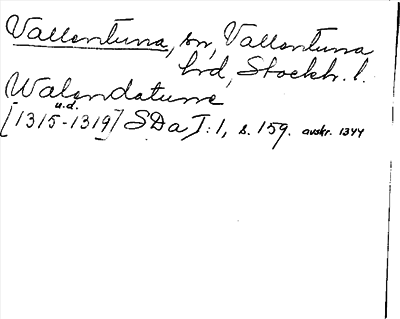 Vallentuna, sn, Vallentuna
hd, Stockh. l.
Walendatune
u.d.
[1315-1319] SDa I:1, s. 159. avskr. 1344